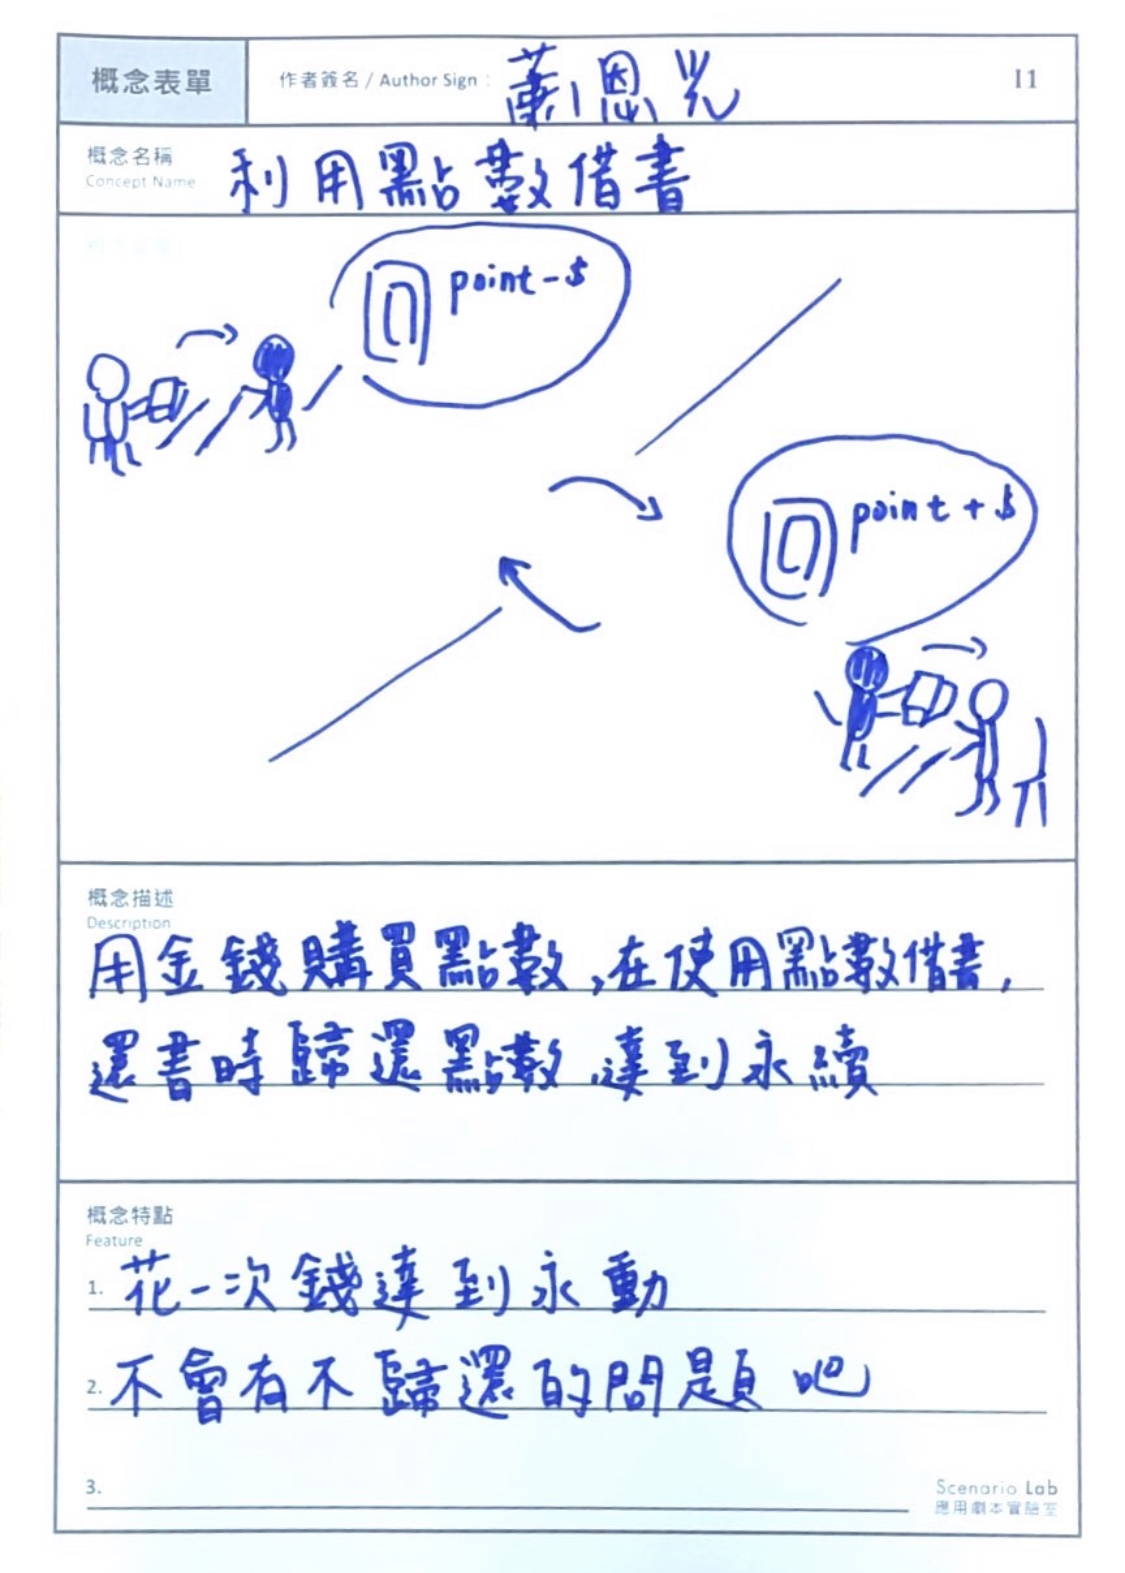 概念表單 作者簽名 / Author Sign : 蕭恩光 I1
概念名稱
Concept Name
利用點數借書
point-$
point+$
概念描述
Description
用金錢購買點數,在使用點數借書,
還書時歸還點數,達到永續
概念特點
Feature
1. 花一次錢達到永動
2. 不會有不歸還的問題吧
3.
Scenario Lab
應用劇本實驗室